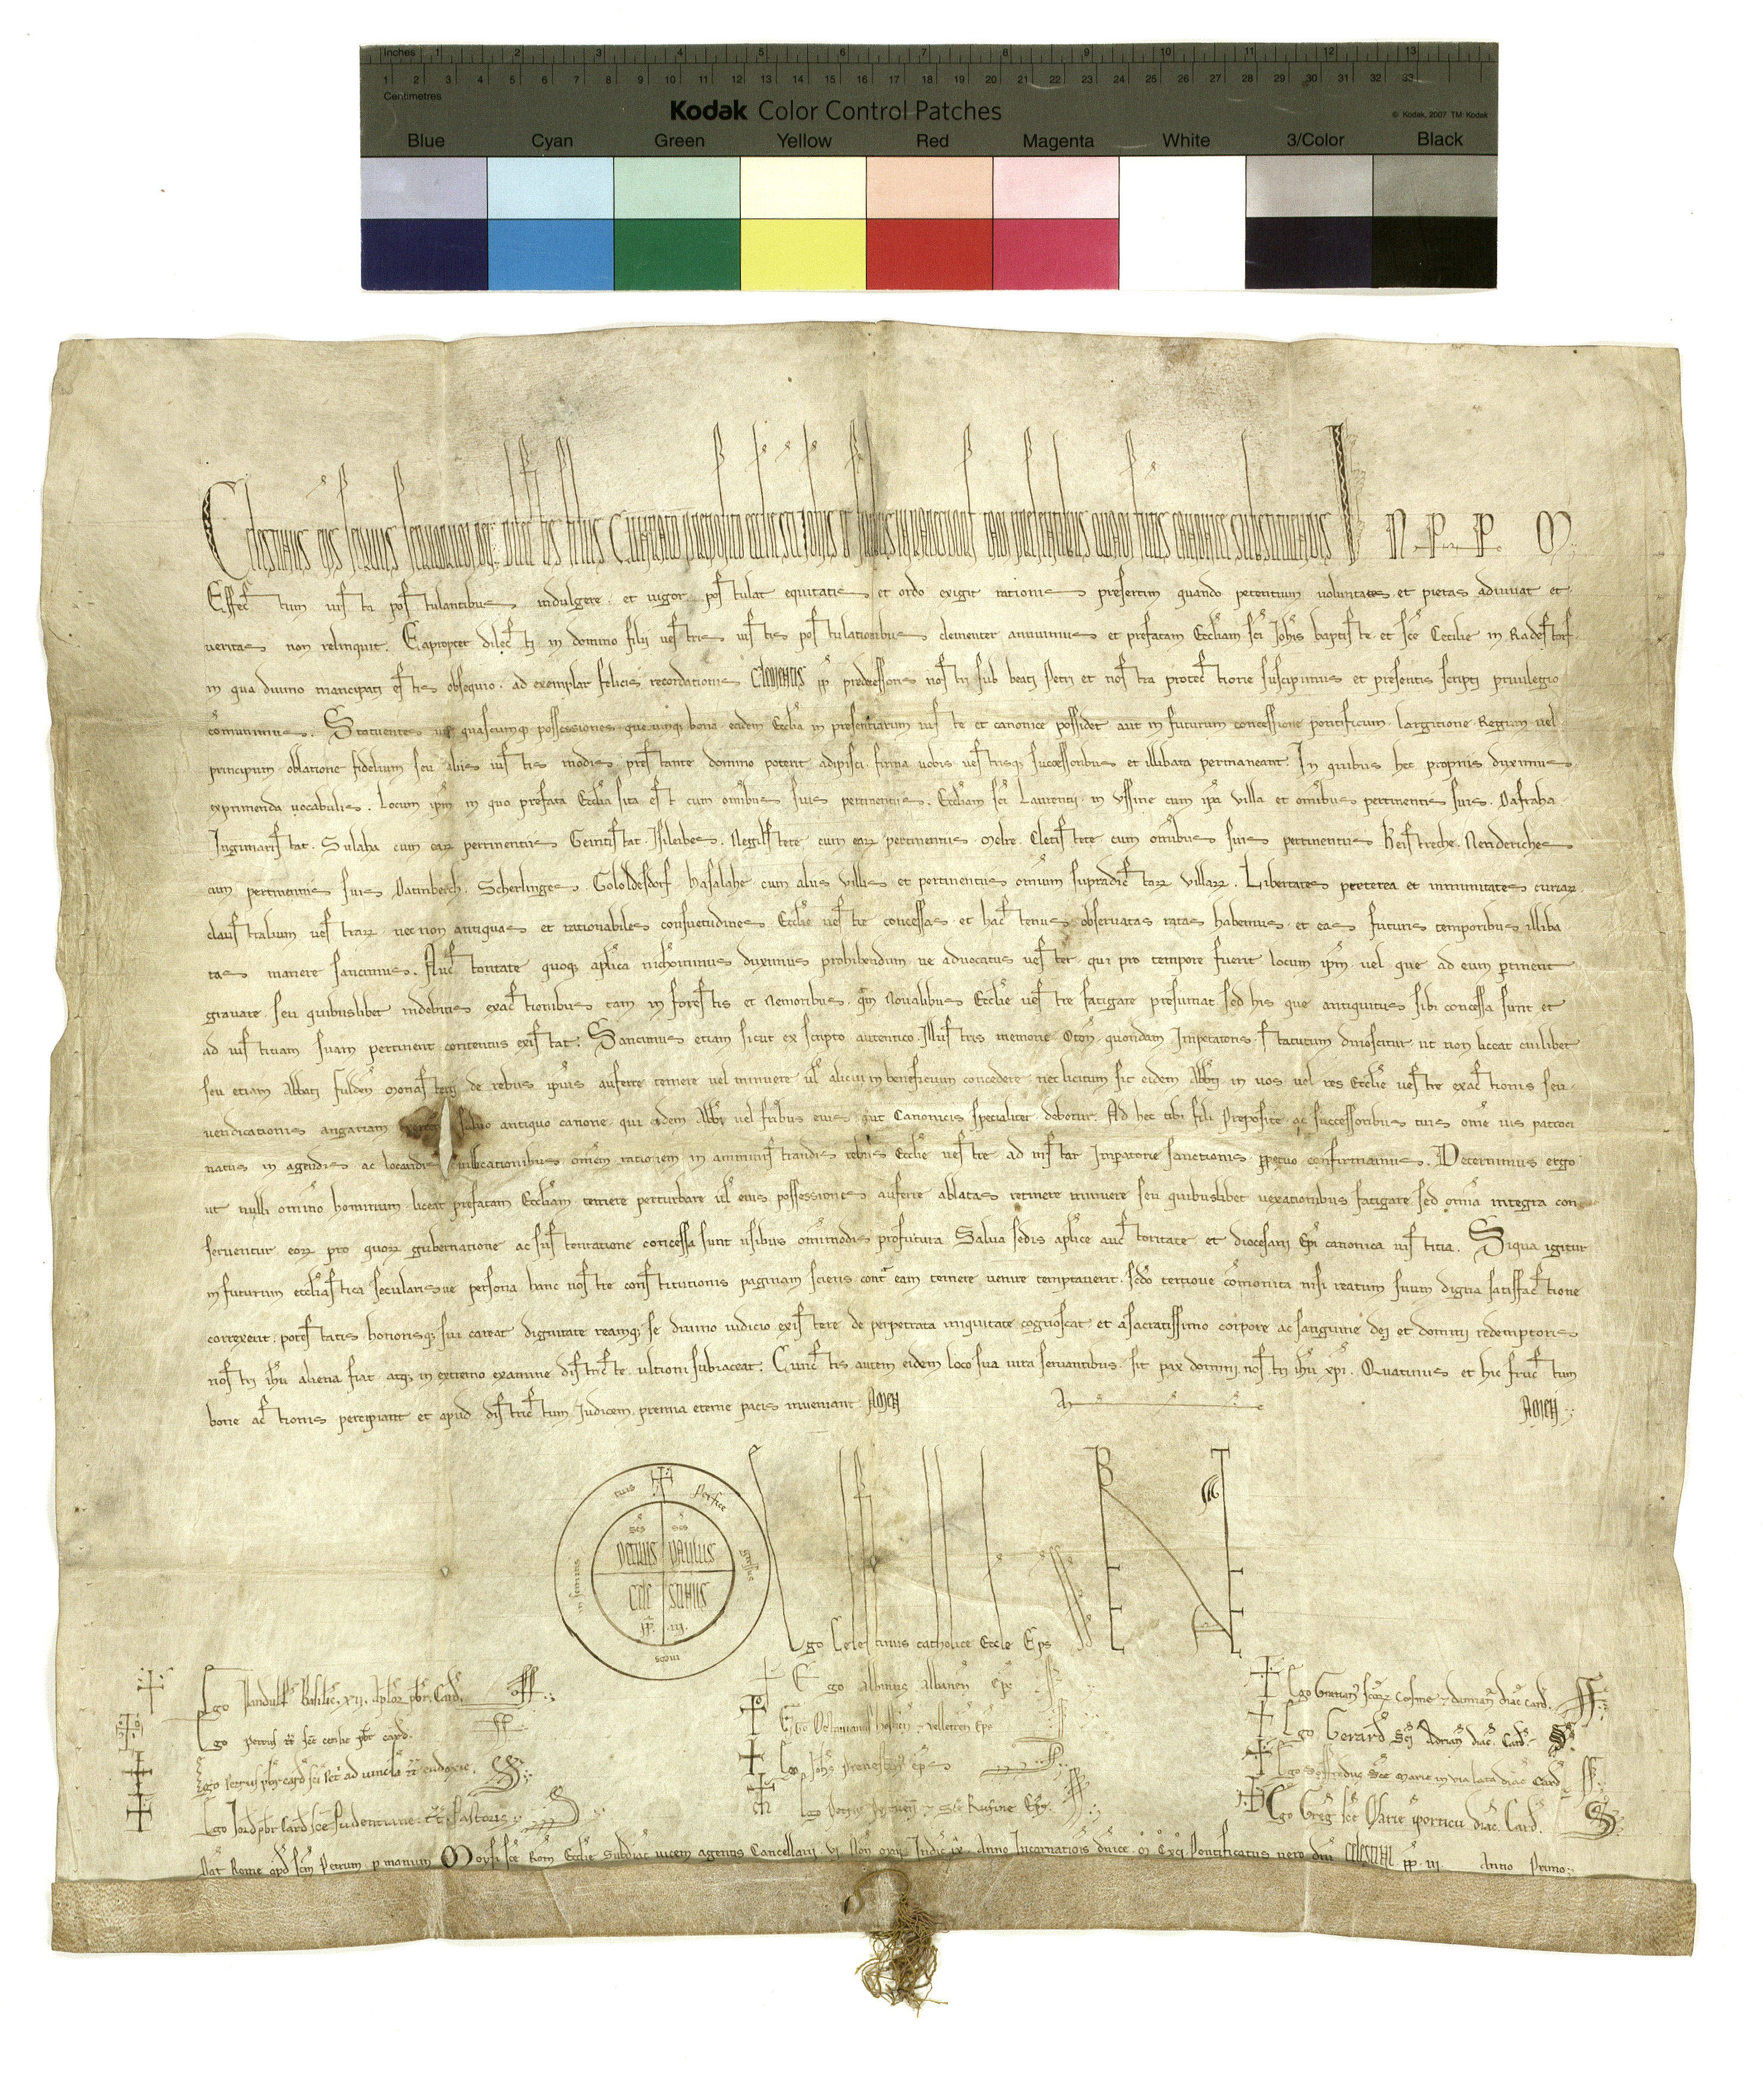 Inches 1 2 3 4 5 6 7 8 9 10 11 12 13
1 2 3 4 5 6 7 8 9 10 11 12 13 14 15 16 17 18 19 20 21 22 23 24 25 26 27 28 29 30 31 32 33
Centimetres
Kodak Color Control Patches
© Kodak, 2007 TM: Kodak
Blue Cyan Green Yellow Red Magenta White 3/Color Black
Celestinus eps seruus seruorum dei. preposito ecclesie sci Johis tam presentibus quam futuris canonice substituendis IN P P M
Effectum iusta postulantibus indulgere. et uigor postulat equitatis et ordo exigit rationis presertim quando petentium uoluntates et pietas adiuuat et
ueritas non relinquit. Eapropter dilecti in domino filii uestris iustis postulationibus clementer annuimus et prefatam Eccliam sci Johis baptiste et sce Cecilie in Radestorf
in qua diuino mancipati estis obsequio. ad exemplar felicis recordationis Clementis pp predecessoris nostri sub beati Petri et nostra protectione suscipimus et presentis scripti priuilegio
comunimus. Statuentes ut quascumq possessiones. quecumq bona eadem Ecclia in presentiarum iuste et canonice possidet aut in futurum concessione pontificum. largitione Regum uel
principum. oblatione fidelium seu aliis iustis modis prestante domino poterit adipisci. firma uobis uestrisq successoribus et illibata permaneant. In quibus hec propriis duximus
exprimenda uocabulis. Locum ipm in quo prefata Ecclia sita est cum omibus suis pertinentiis. Eccliam sci Laurentii in Vssine cum ipa uilla et omibus pertinentiis suis. Dafraha
Ingimaristat. Sulaha cum earum pertinentiis Geintistat. Isileibes. Negilstete cum earum pertinentiis. Melre. Cletistete cum omibus suis pertinentiis Beistreche. Nenderiches
cum pertinentiis suis Datinberch. Scherlinges. Gololdesdorf. Hasalahe cum aliis uillis et pertinentiis omium supradictarum uillarum. Libertates preterea et immunitates curiarum
claustralium uestrarum. nec non antiquas et rationabiles consuetudines Ecclie uestre concessas. et hactenus obseruatas ratas habemus. et eas futuris temporibus illiba
tas manere sancimus. Auctoritate quoq aplica nichominus duximus prohibendum. ne aduocatus uester qui pro tempore fuerit locum ipm uel que ad eum ptinent
grauare seu quibuslibet indebitis exactionibus tam in forestis et Nemoribus. qm Noualibus Ecclie uestre fatigare presumat sed his que antiquitus sibi concessa sunt et
ad iustitiam suam pertinent contentus existat. Sancimus etiam sicut ex scripto autentico. Illustris memorie Oton quondam Impatoris. statutum dinoscitur. ut non liceat cuilibet
seu etiam Abbati fulden Monasterii de rebus ipius auferre temere uel minuere ul alicui in beneficium concedere. nec licitum sit eidem Abbti. in uos uel res Ecclie uestre exactionis seu
uendicationis angariam saluo antiquo canone. qui eidem Abbi uel fribus eius aut Canonicis specialiter debetur. Ad hec tibi fili Preposite ac successoribus tuis ome ius patroci
natus in agendis ac locandis uillicationibus. omem rationem in amministrandis rebus Ecclie uestre ad instar Imperatorie sanctionis. ppetuo confirmamus. Decernimus ergo
ut nulli omino hominum liceat prefatam Eccliam temere perturbare ul eius possessiones auferre ablatas retinere minuere seu quibuslibet uexationibus fatigare. sed omia integra con
seruentur eorum pro quorum gubernatione ac sustentatione concessa sunt usibus omimodis profutura. Salua sedis aplice auctoritate et diocesani Epi canonica iustitia. Siqua igitur
in futurum ecclesiastica secularisue persona hanc nostre constitutionis paginam sciens cont eam temere uenire temptauerit. scdo tertioue comonita nisi reatum suum digna satisfactione
correxerit. potestatis honorisq sui careat dignitate reamq se diuino iudicio existere de perpetrata iniquitate cognoscat et a sacratissimo corpore ac sanguine dei et domini redemptoris
nostri ihu aliena fiat. atq in extremo examine districte ultioni subiaceat. Cunctis autem eidem loco sua iura seruantibus. sit pax domini nostri ihu xpi. Quatinus et hic fructum
bone actionis percipiant et apud districtum Iudicem premia eterne pacis inueniant. AMEN A AMEN
Perfice gressus meos in semitis tuis
scs PETRUS scs PAULUS
CELESTINUS PP III
Ego Celestinus catholice Eccle Eps
Ego Pandulf Basilic. XII. Aplor pbr. Card.
Ego Petrus tt sce cecilie pbr card.
Ego Petrus pbr card sci Pet ad uincla tt eudoxie.
Ego Jord pbr card sce Pudentiane tt Pastoris
Ego Albinus Albanen eps
Ego Octauianus hostien et uelletren Eps
Ego Johs Prenestinus eps
Ego Petrus Portuen et Sce Rufine Eps
Ego Gratian scor Cosme et damian diac card.
Ego Gerard Sci Adrian diac. Card.
Ego Soffredus Sce Marie in uia lata diac Card
Ego Greg sce Marie in porticu diac. Card.
Dat Rome apd scm Petrum. p manum Moysi sce Rom Ecclie Subdiac uicem agentis Cancellarii. VI Non Indic IX. Anno Incarnatiois dnice. M C XCI Pontificatus uero dni CELESTINI pp III. Anno Primo